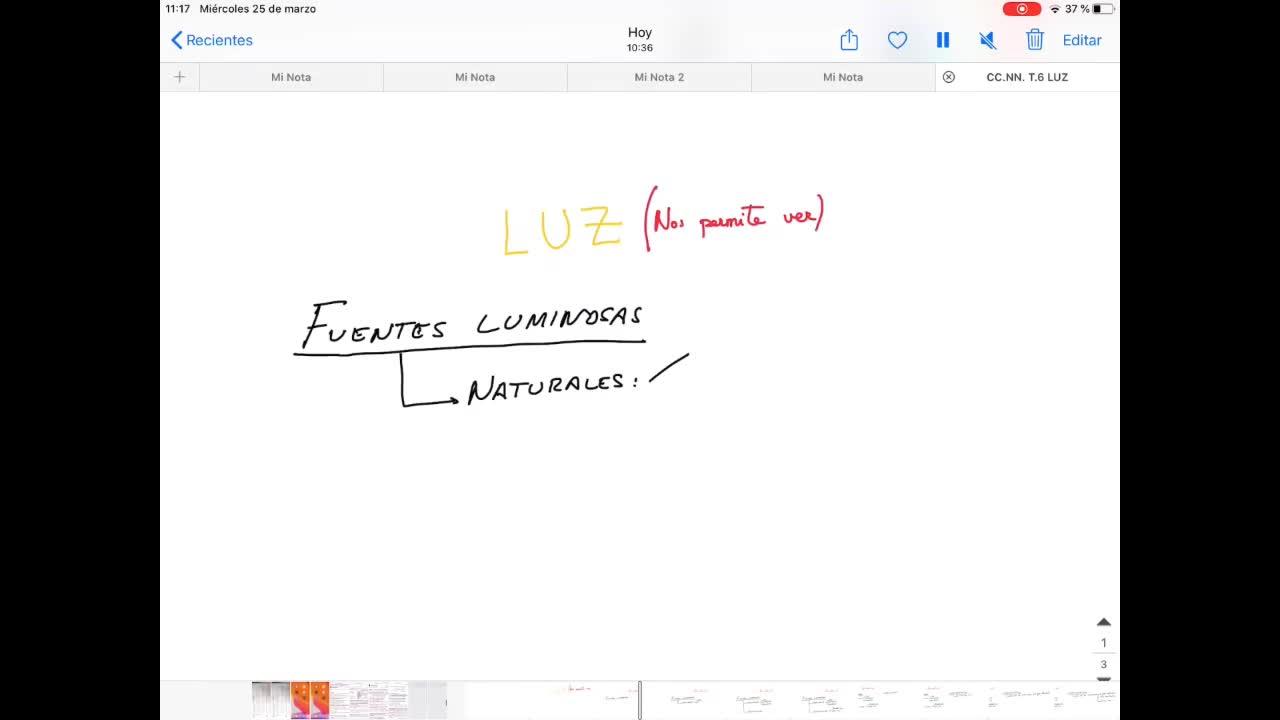 11:17 Miércoles 25 de marzo
37 %
Recientes
Hoy
10:36
Editar
Mi Nota
Mi Nota
Mi Nota 2
Mi Nota
CC.NN. T.6 LUZ
LUZ (Nos permite ver)
FUENTES LUMINOSAS
NATURALES:
1
3